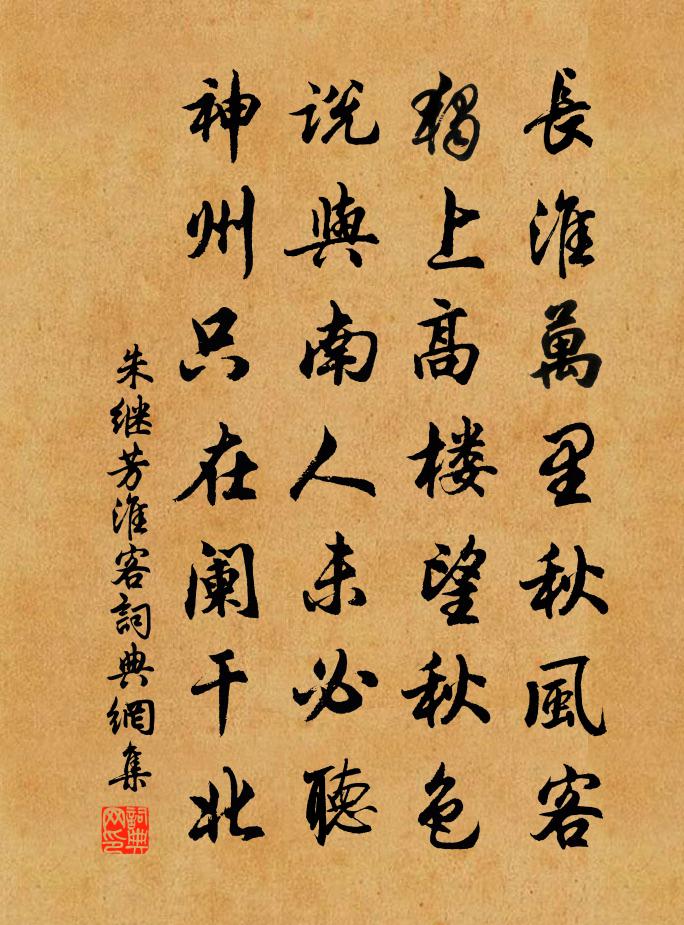 長淮萬里秋風客
獨上高楼望秋色
說與南人未必聽
神州只在阑干北
朱继芳淮客詞典網集
詞典网印